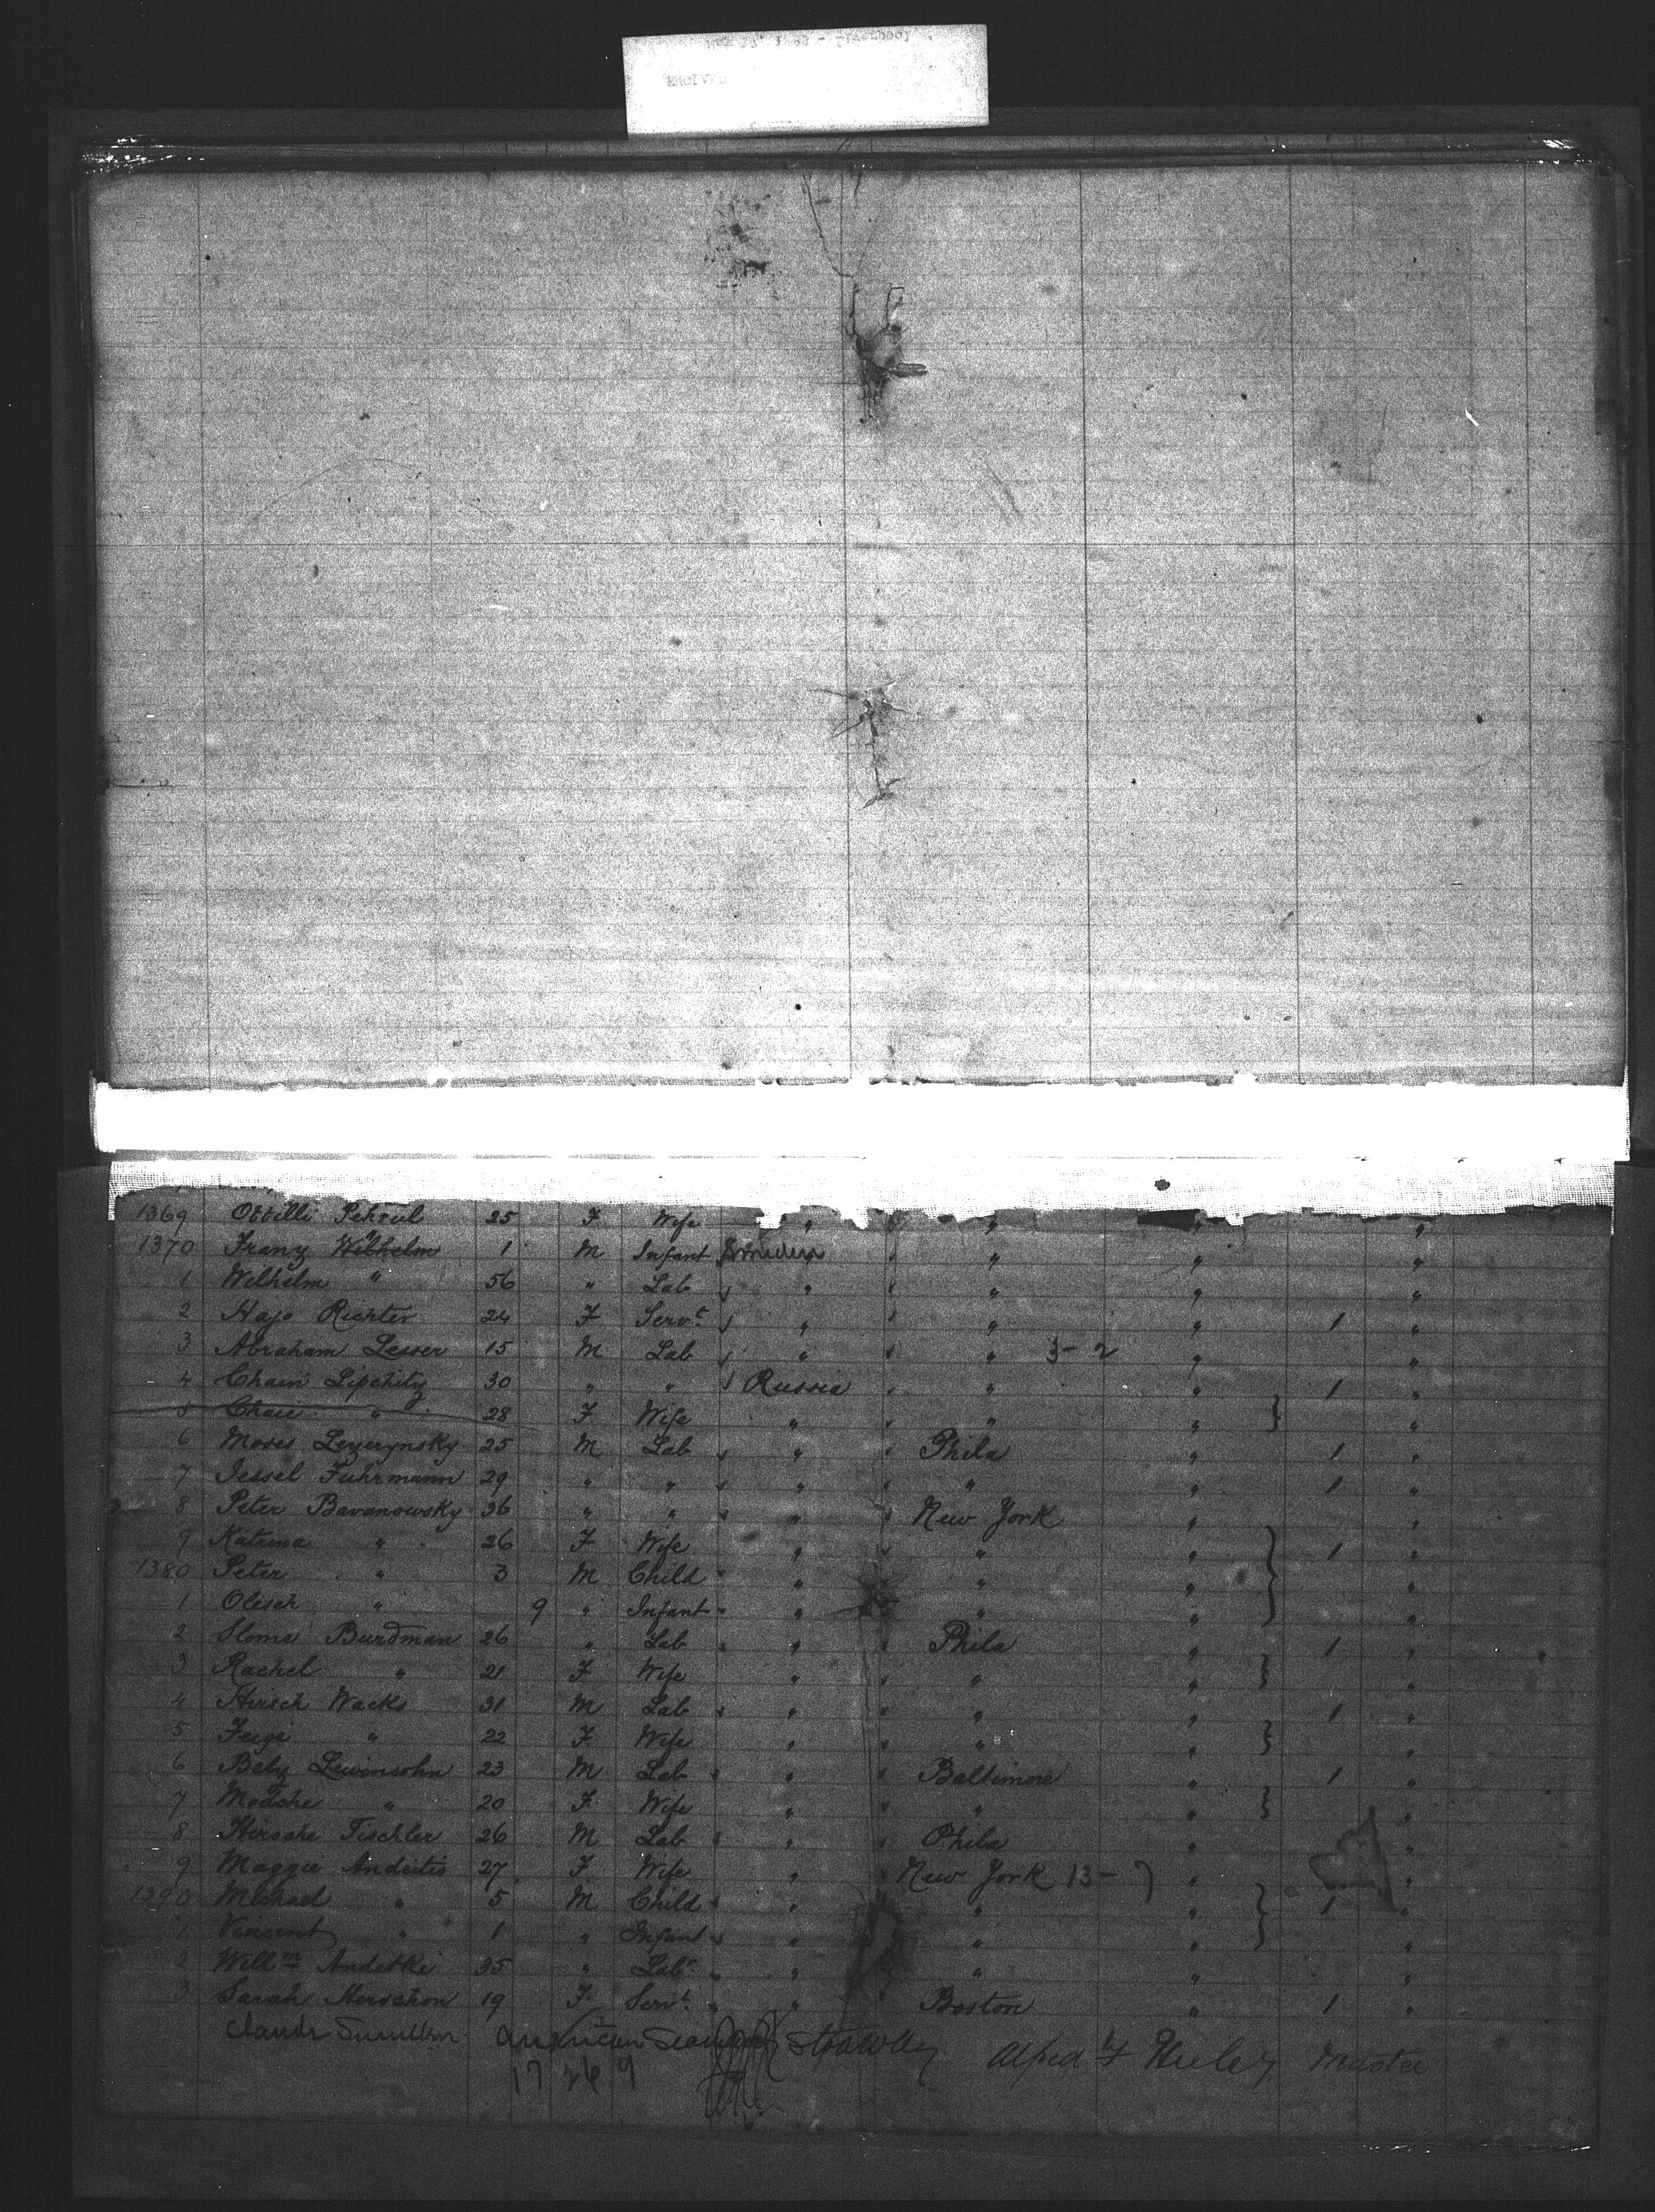 1369 Ottilli Pekrul 25 F Wife " " "
1370 Franz Wilhelm " 1 M Infant " " " "
1 Wilhelm " 56 " Lab " " " "
2 Hajo Richter 24 F Servt " " " 1 "
3 Abraham Lesser 15 M Lab " " 3-2 " "
4 Chain Lipchitz 30 " " Russia " " 1 "
5 Chaie " 28 F Wife " " " "
6 Moses 25 M Lab " Phila " 1 "
7 Jessel Fuhrmann 29 " " " " " 1 "
8 Peter Bavanowsky 36 " " " New York " "
9 Katrina " 26 F Wife " " " 1 "
1380 Peter " 3 M Child " " " "
1 Olesch " 9 " Infant " " " "
2 Slome Burdman 26 " Lab " Phila " 1 "
3 Rachel " 21 F Wife " " " "
4 Hirsch Wacks 31 M Lab " " " 1 "
5 Feige " 22 F Wife " " " "
6 Baly Lewinsohn 23 M Lab " Baltimore " 1 "
7 " 20 F Wife " " " "
8 Hirsche Fischler 26 M Lab " Phila " "
9 Maggie Andeitis 27 F Wife " New York 13- " "
1390 Michael " 5 M Child " " " 1 "
1 Vincent " 1 " Infant " " " "
2 Willm Andetke 35 " Labr " " " "
3 Sarah Herschon 19 F Servt " Boston " 1 "
Claude American Alfred F Master